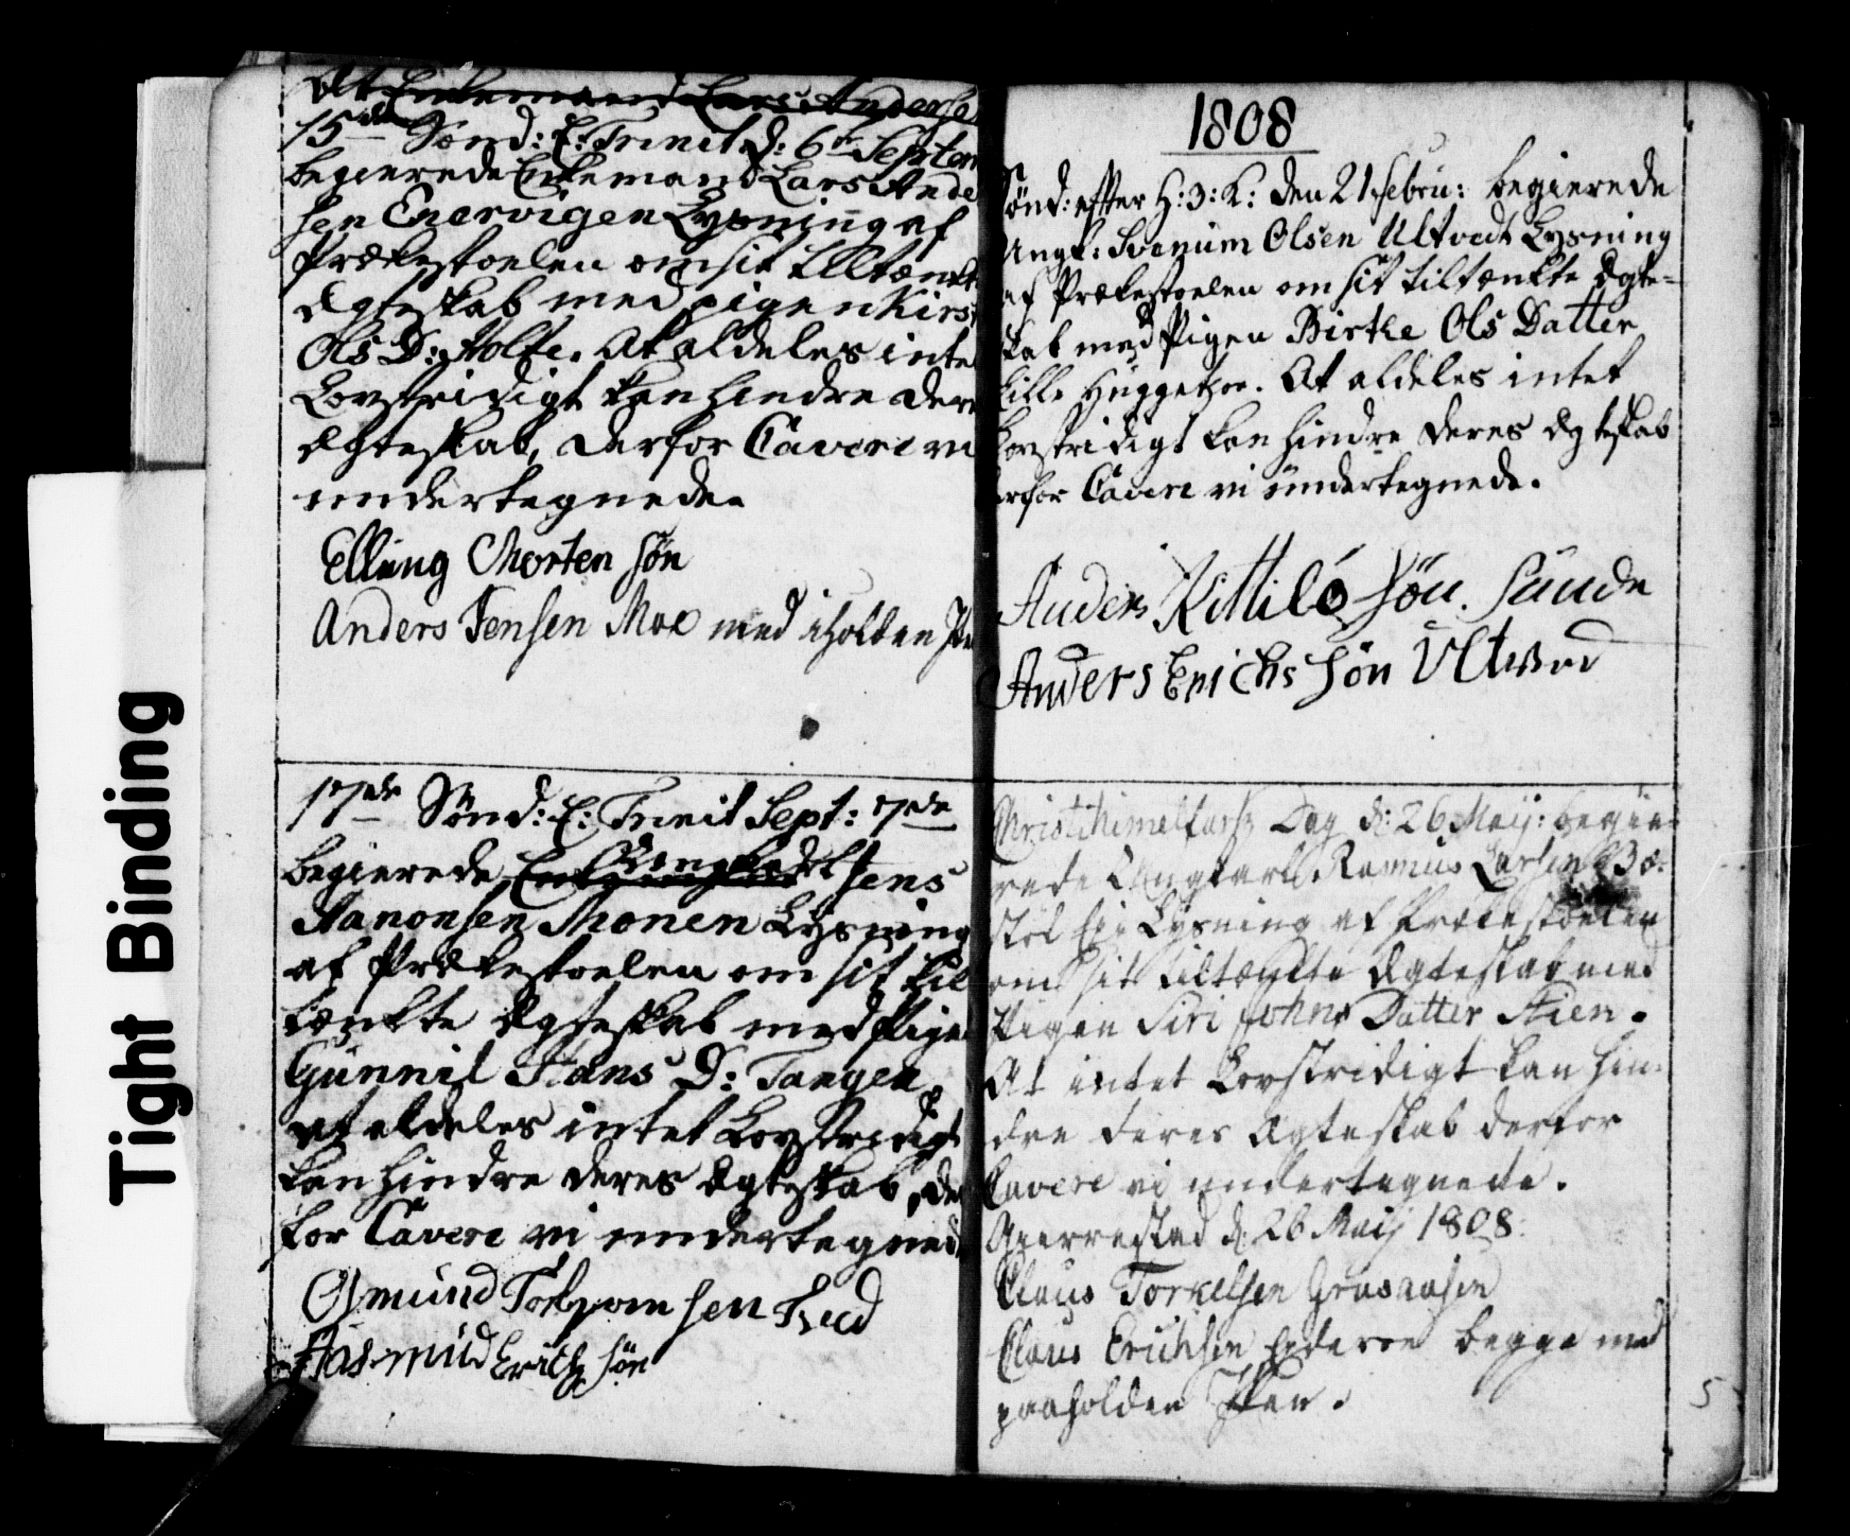 At Enkemand Lars Anderse
15de Sønd: E: Trinit: d: 6te Septem
begierede Enkemand Lars Ande
sen Enervigen Lysning af
Prækestoelen om sit tiltænkt
Ægteskab med Pigen Kirst
Ols D: Holte. At aldeles inte
Lovstridigt kan hindre dere
Ægteskab, derfor Cavere vi
undertegnede.
Elling Morten søn
Anders Jensen Moe med iholden Pe
17de Sønd: E: Trinit Sept:
Ungkarl
begierede Jens
Aanonsen Monen Lysning
af Prækestoelen om sit til
tænkte Ægteskab med Pige
Gunnil Hans D: Tangen,
at aldeles intet Lovstridigt
kan hindre deres Ægteskab, der
for Cavere vi undertegnede
Osmund
Aasmud Erichs søn
Tight Binding
1808
Sønd: effter H: 3: K: den 21 Febru: begierede
Ungk: Svenum Olsen Ultvedt Lysning
af Prækestoelen om sit tiltænkte Ægte-
skab med Pigen Birthe Ols Datter
Lille At aldeles intet
Lovstridigt kan hindre deres Ægteskab
erfor Cavere vi undertegnede.
Anders Kittils søn. Sunde
Anders Erichs søn Ultved
Christi Himelfarts Dag d: 26 Maij: begie-
rede Ungkarl Rasmus Larsen
Lysning af Prækestoelen
om sit tiltænkte Ægteskab med
Pigen Siri Johns Datter Stien.
At intet Lovstridigt kan hin-
dre deres Ægteskab derfor
Cavere vi undertegnede.
Gierrestad d: 26 Maij 1808.
Claus Torkelsen Grasaasen
Claus Erichsen begge med
paaholden Pen.
5